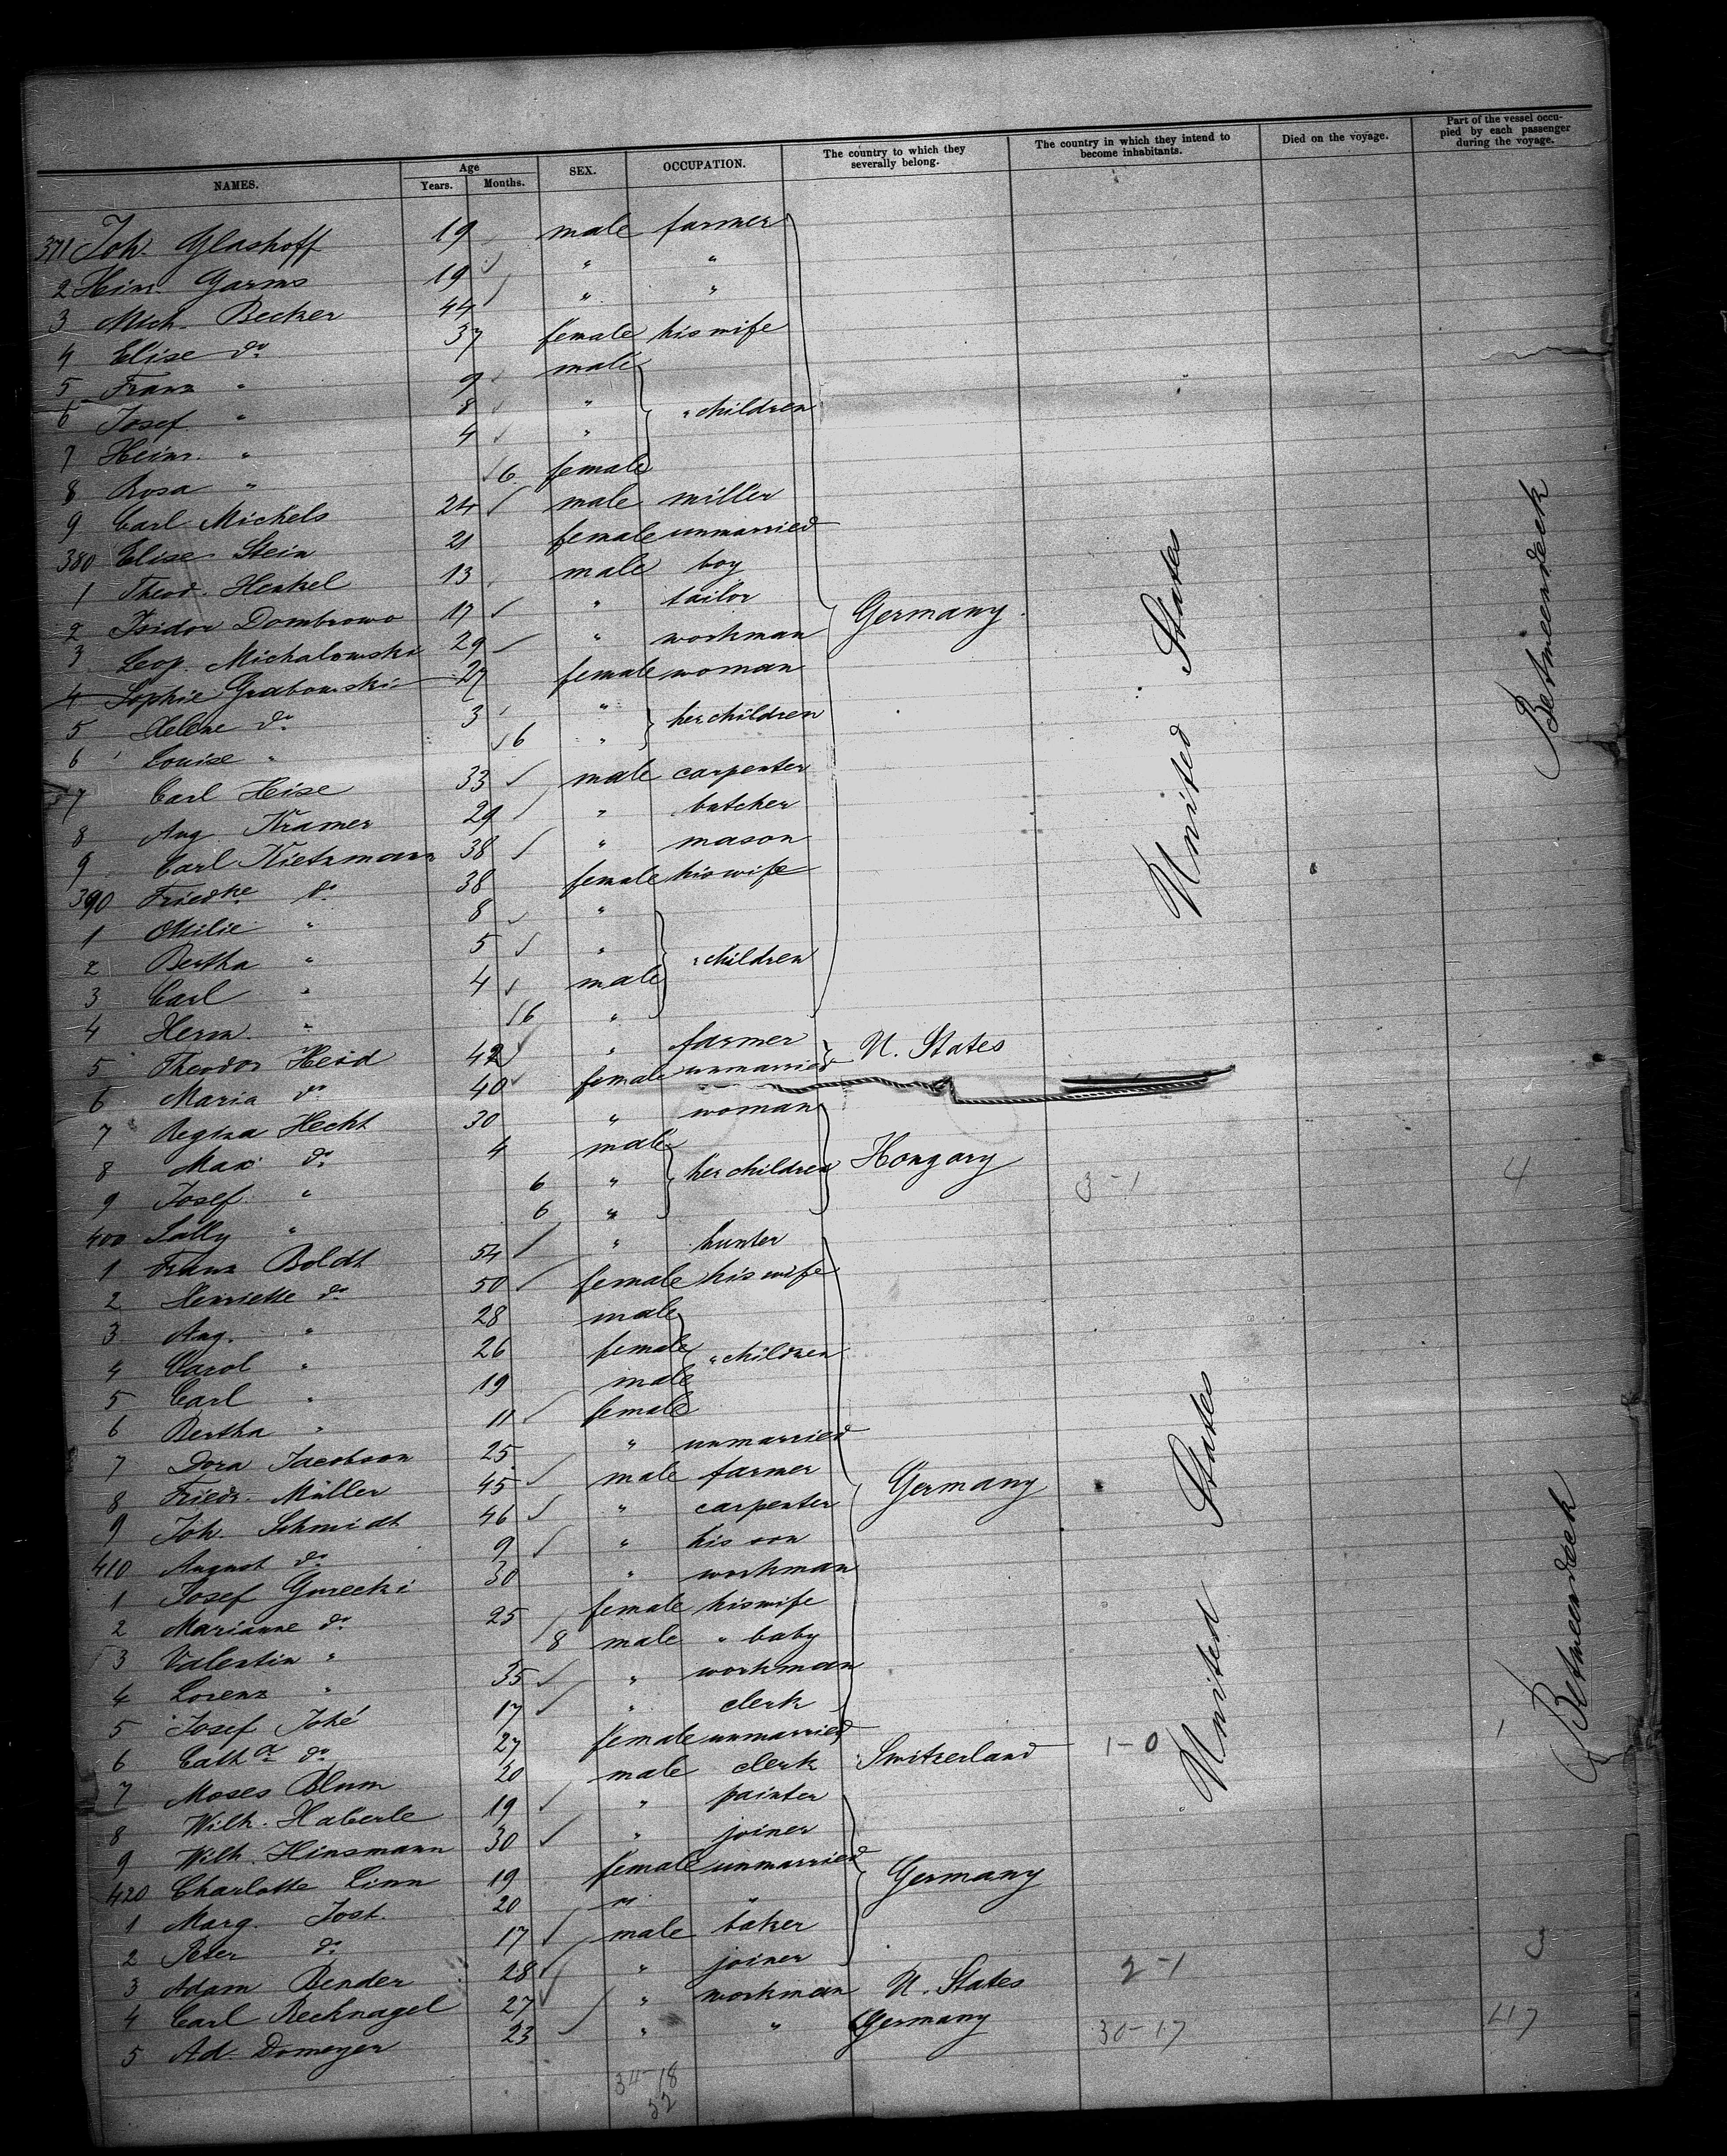 NAMES. Age Years. Months. SEX. OCCUPATION. The country to which they severally belong. The country in which they intend to become inhabitants. Died on the voyage. Part of the vessel occupied by each passenger during the voyage.
371 Joh. Glashoff 19 male farmer
2 Hinr. Garms 19 " "
3 Mich. Becker 44 " "
4 Elise do 37 female his wife
5 Franz " 9 male
6 Josef " 8 " " children
7 Heinr. " 4 "
8 Rosa " 6 female
9 Carl Michels 24 male miller
380 Elise Stein 21 female unmarried
1 Theod. Henkel 13 male boy
2 Isidor Dombrowo 17 " tailor Germany.
3 Leop. Michalowski 29 " workman
4 Sophie Grabowski 27 female woman
5 Helene do 3 " her children
6 Louise " 6 "
7 Carl Heise 33 male carpenter
8 Aug Kramer 29 " butcher
9 Carl Kietzmann 38 " mason
390 Friedke do 38 female his wife
1 Ottilie " 8 "
2 Bertha " 5 " " children
3 Carl " 4 male
4 Herm. " 6 "
5 Theodor Heid 42 " farmer U. States
6 Maria do 40 female unmarried
7 Regina Hecht 30 " woman
8 Max do 4 male her children Hongary
9 Josef " 6 " 3-1 4
400 Sally " 6 "
1 Franz Boldt 54 " hunter
2 Henriette do 50 female his wife
3 Aug. " 28 male
4 Carol " 26 female " children
5 Carl " 19 male
6 Bertha " 11 female
7 Dora Jacobson 25 " unmarried
8 Friedr. Müller 45 male farmer Germany
9 Joh. Schmidt 46 " carpenter
410 August do 9 " his son
1 Josef Gurecki 30 " workman
2 Marianne do 25 female his wife
3 Valentin " 8 male " baby
4 Lorenz " 35 " workman
5 Josef Johé 17 " clerk
6 Catha do 27 female unmarried
7 Moses Blum 20 male clerk Switzerland 1-0 1
8 Wilh. Haberle 19 " painter
9 Wilh. Hinsmann 30 " joiner
420 Charlotte Linn 19 female unmarried Germany
1 Marg. Jost. 20 " "
2 Peter do 17 male baker
3 Adam Bender 28 " joiner
4 Carl Recknagel 27 " workman U. States 2-1
5 Ad. Domeyer 23 " " Germany 30-17
34-18
52
United States
Betweendeck
United States
Betweendeck